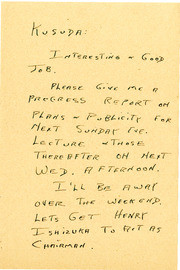 KUSUDA:
INTERESTING & GOOD
JOB.
PLEASE GIVE ME A
PROGRESS REPORT ON
PLANS & PUBLICITY FOR
NEXT SUNDAY EVE.
LECTURE & THOSE
THEREAFTER ON NEXT
WED. AFTERNOON.
I'LL BE AWAY
OVER THE WEEKEND.
LETS GET HENRY
ISHIZUKA TO ACT AS
CHAIRMAN.